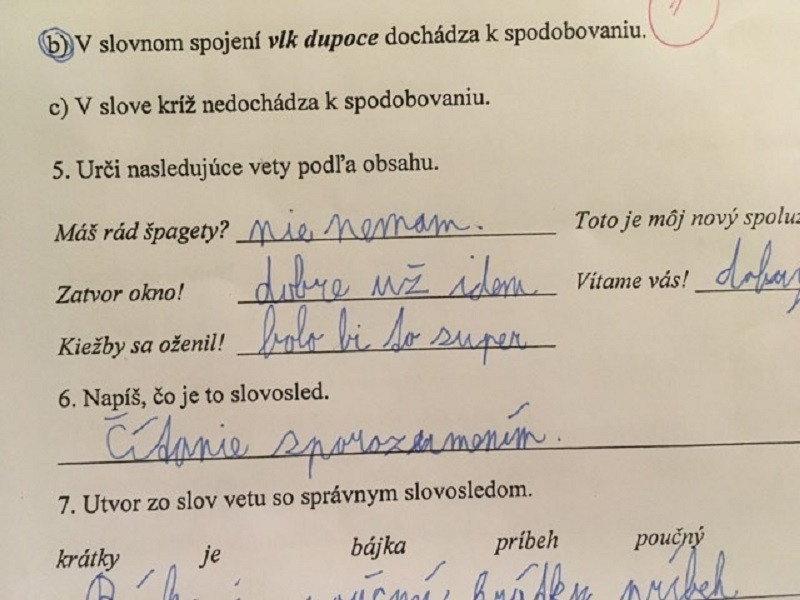 b) V slovnom spojení vlk dupoce dochádza k spodobovaniu.
c) V slove kríž nedochádza k spodobovaniu.
5. Urči nasledujúce vety podľa obsahu.
Máš rád špagety? nie nemam. Toto je môj nový spoluž
Zatvor okno! dobre už idem Vítame vás!
Kiežby sa oženil! bolo bi to super
6. Napíš, čo je to slovosled.
Čítanie sporozumením.
7. Utvor zo slov vetu so správnym slovosledom.
krátky je bájka príbeh poučný
krátky príbeh